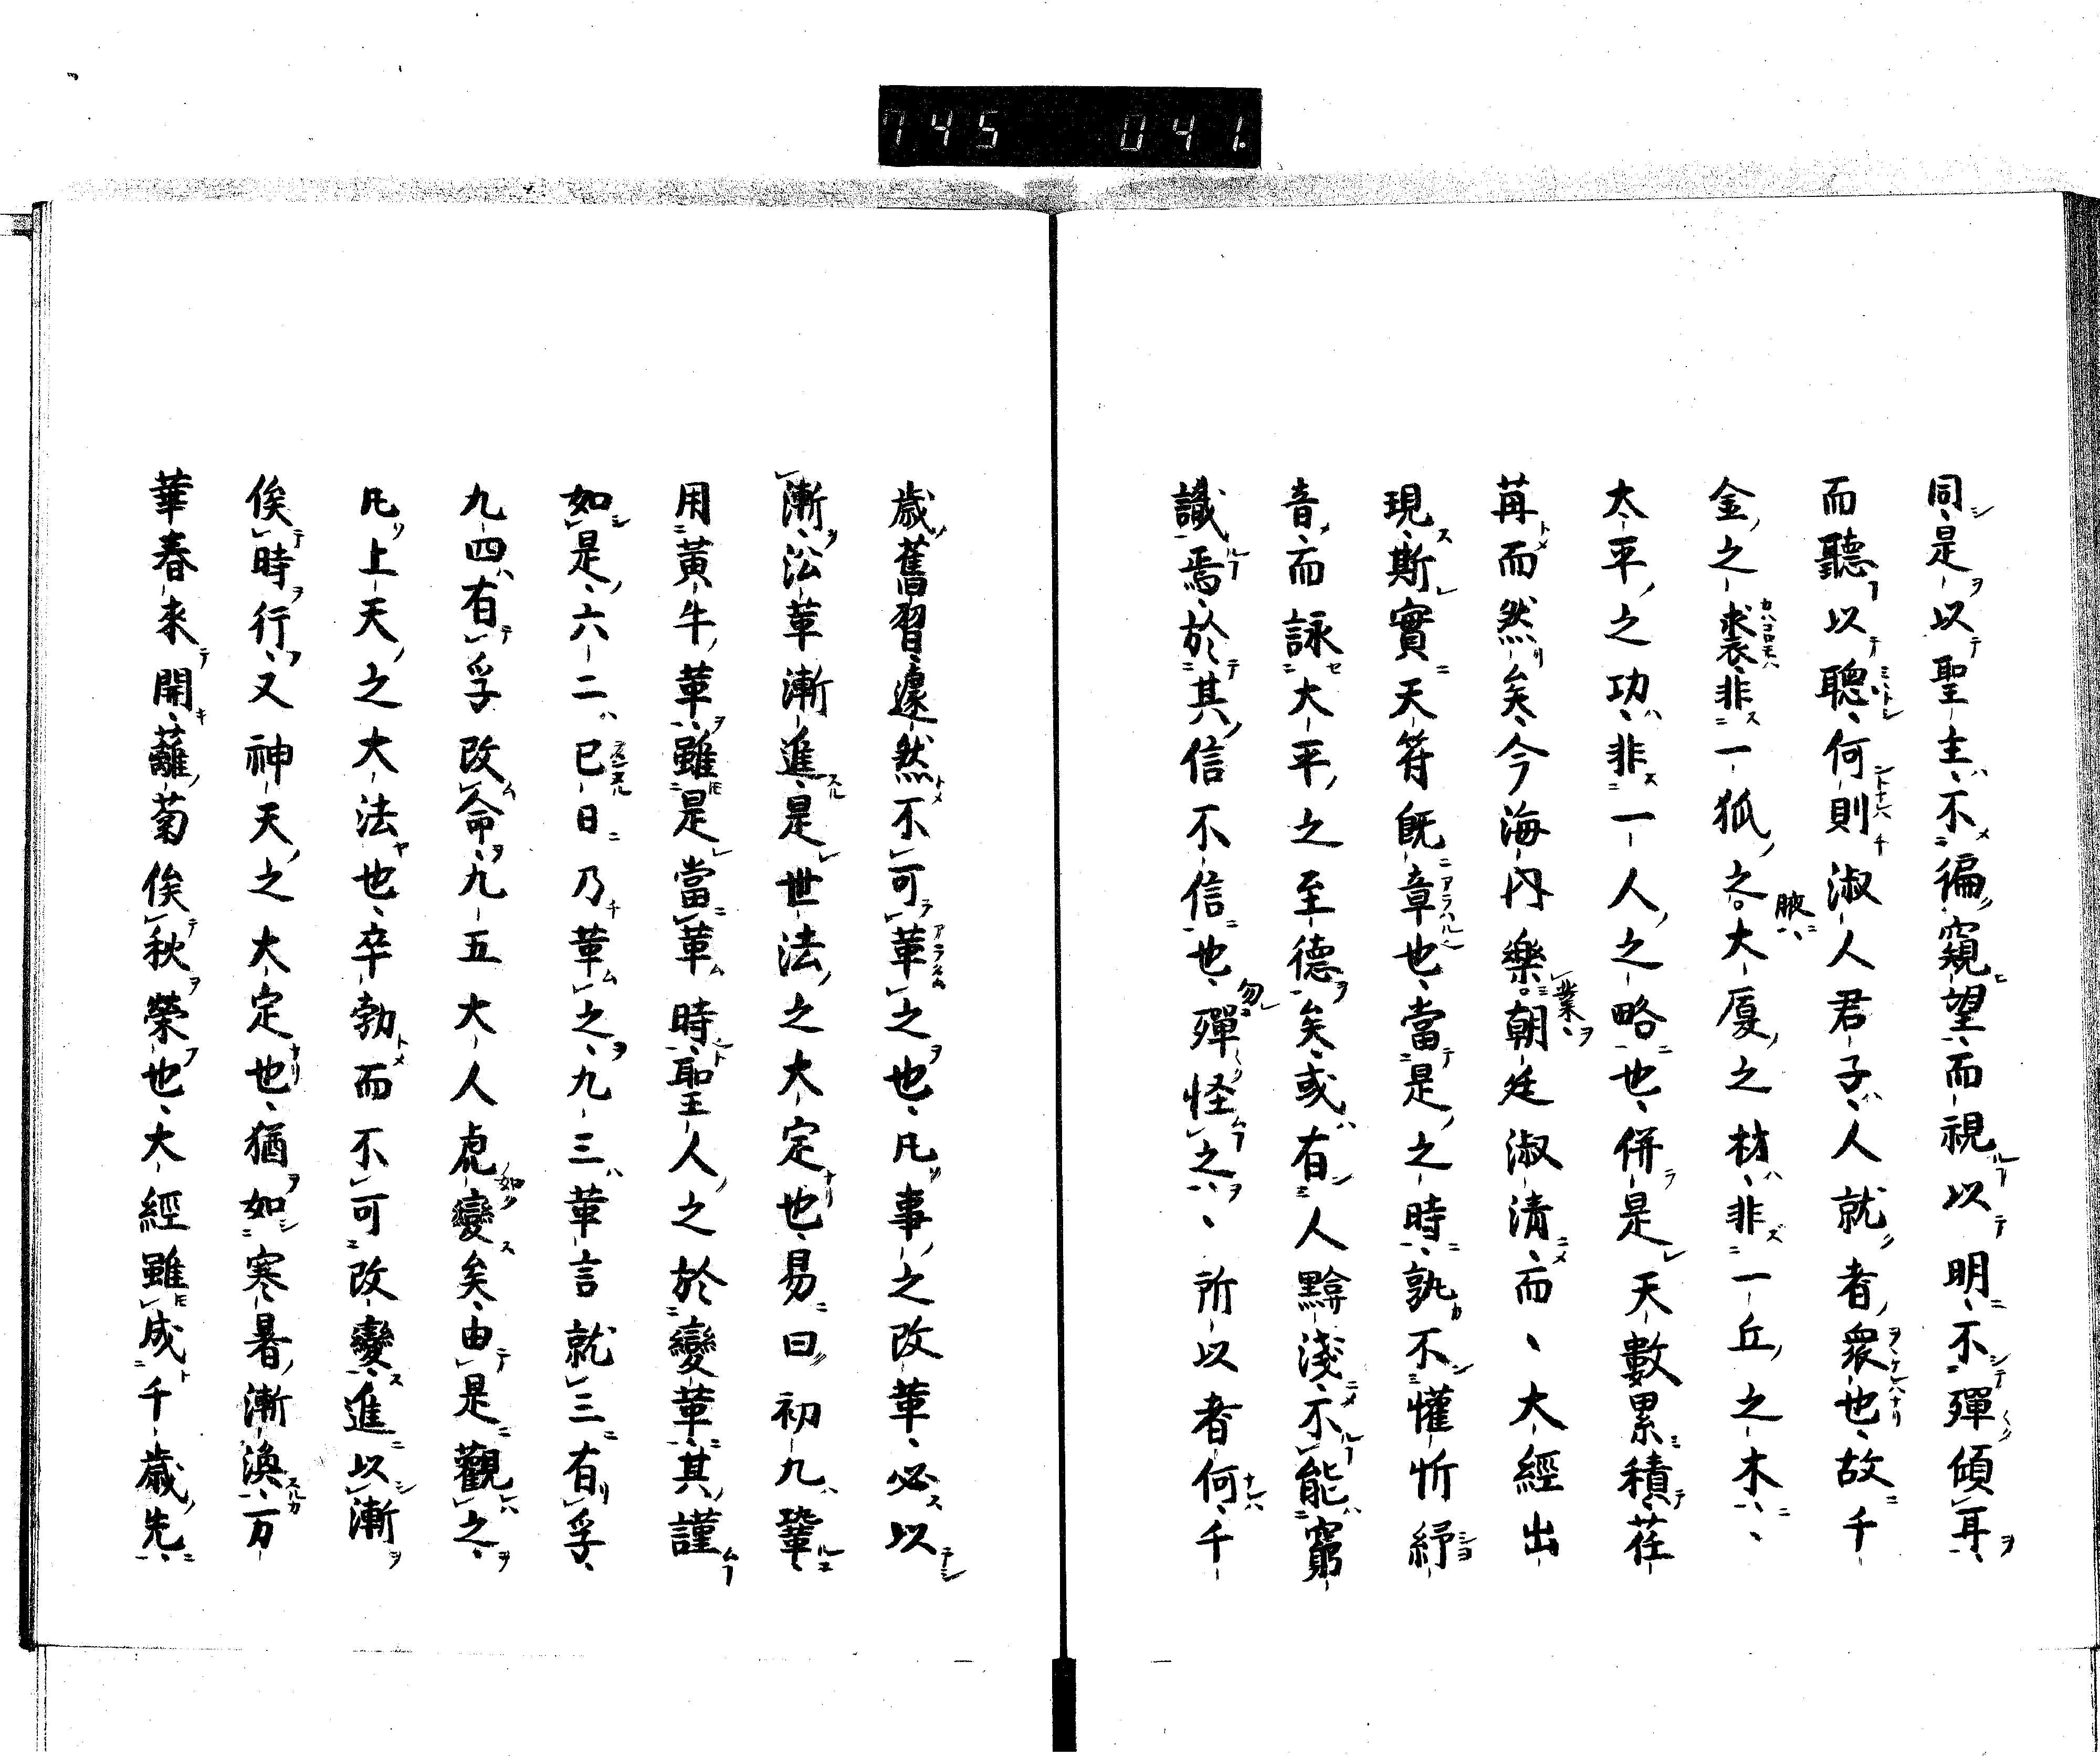 745 041.
同是以聖主不徧窺望而視以明不殫傾耳
而聽以聰何則淑人君子人就者衆也故千
金之裘非一狐之腋大厦之材非一丘之木、
太平之功非一人之略也併是天數累積荏
苒而然矣今海内樂業朝廷淑清而、大經出
現斯實天符既章也當是之時孰不懽忻紓
音而詠大平之至德矣或有人黭淺不能窮
識焉於其信不信也勿殫怪之、所以者何千
歳舊習遽然不可革之也凡事之改革必以
漸㳂革漸進是世法之大定也易曰初九鞏
用黃牛革雖是當革時聖人之於變革其謹
如是六二已日乃革之九三革言就三有孚
九四有孚改命九五大人虎變矣由是觀之
凡上天之大法也卒勃而不可改變進以漸
俟時行又神天之大定也猶如寒暑漸渙万
華春來開蘺菊俟秋榮也大經雖成千歳先